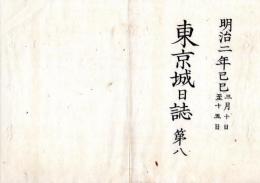 明治二年己巳 三月十日 至十五日
東京城日誌 第八